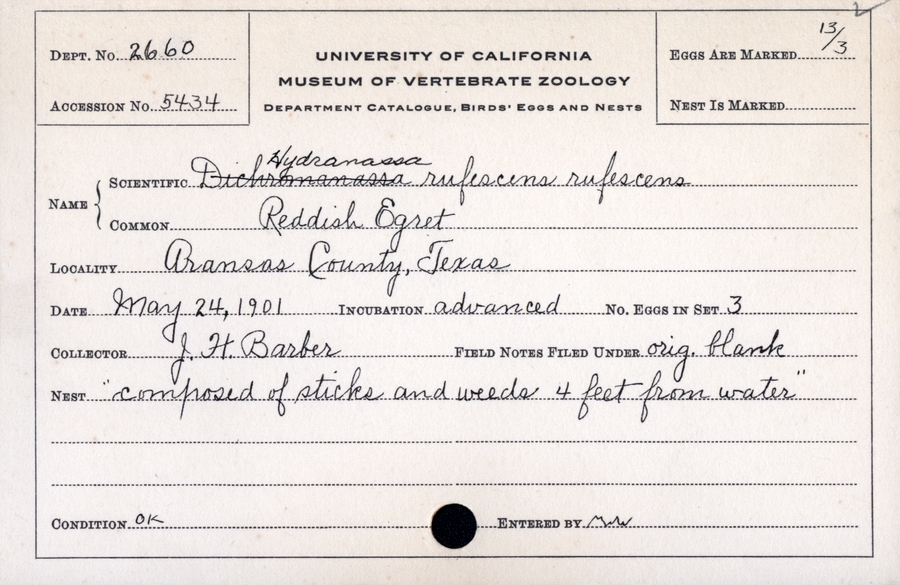 2
DEPT. NO. 2660
UNIVERSITY OF CALIFORNIA
MUSEUM OF VERTEBRATE ZOOLOGY
DEPARTMENT CATALOGUE, BIRDS' EGGS AND NESTS
ACCESSION NO. 5434
EGGS ARE MARKED 13/3
NEST IS MARKED
Hydranassa
NAME { SCIENTIFIC Dichromanassa rufescens rufescens
COMMON Reddish Egret
LOCALITY Aransas County, Texas
DATE May 24, 1901 INCUBATION advanced NO. EGGS IN SET 3
COLLECTOR J. H. Barber FIELD NOTES FILED UNDER orig. blank
NEST "composed of sticks and weeds 4 feet from water"
CONDITION OK ENTERED BY